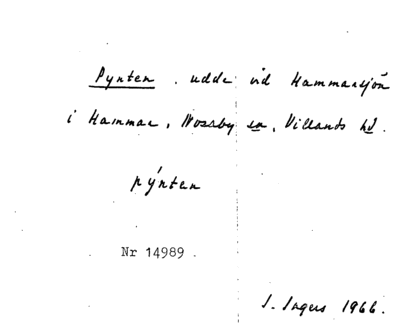 Pynten, udde vid Hammarsjön
i Hammar, Nosaby sn, Villands hd.
pýnten
Nr 14989
I. Ingers 1966.